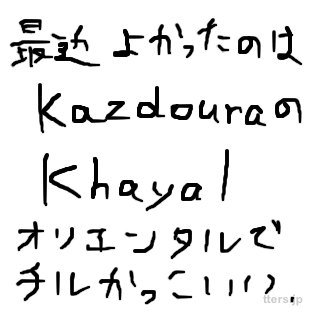 最近よかったのは
Kazdouraの
Khayal
オリエンタルで
チルかっこいい。
tters.jp